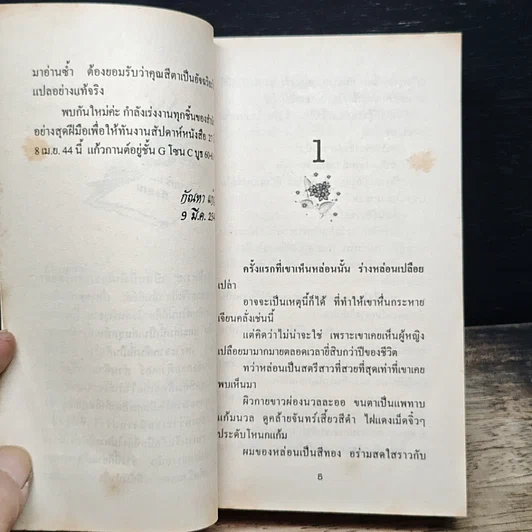 มาอ่านซ้ำ ต้องยอมรับว่าคุณสีดาเป็นอัจฉริยะ
แปลอย่างแท้จริง
พบกันใหม่ค่ะ กำลังเร่งงานทุกชิ้นของสำนั
อย่างสุดฝีมือเพื่อให้ทันงานสัปดาห์หนังสือ 2
8 เม.ย. 44 นี้ แก้วกานต์อยู่ชั้น G โซน C บูธ 60-
กัณหา แก้
9 มี.ค. 25
1
ครั้งแรกที่เขาเห็นหล่อนนั้น ร่างหล่อนเปลือย
เปล่า
อาจจะเป็นเหตุนี้ก็ได้ ที่ทำให้เขาหื่นกระหาย
เจียนคลั่งเช่นนี้
แต่คิดว่าไม่น่าจะใช่ เพราะเขาเคยเห็นผู้หญิง
เปลือยมามากมายตลอดเวลายี่สิบกว่าปีของชีวิต
ทว่าหล่อนเป็นสตรีสาวที่สวยที่สุดเท่าที่เขาเคย
พบเห็นมา
ผิวกายขาวผ่องนวลละออ ขนตาเป็นแพทาบ
แก้มนวล ดูคล้ายจันทร์เสี้ยวสีดำ ไฝแดงเม็ดจิ๋วๆ
ประดับโหนกแก้ม
ผมของหล่อนเป็นสีทอง อร่ามสดใสราวกับ
5